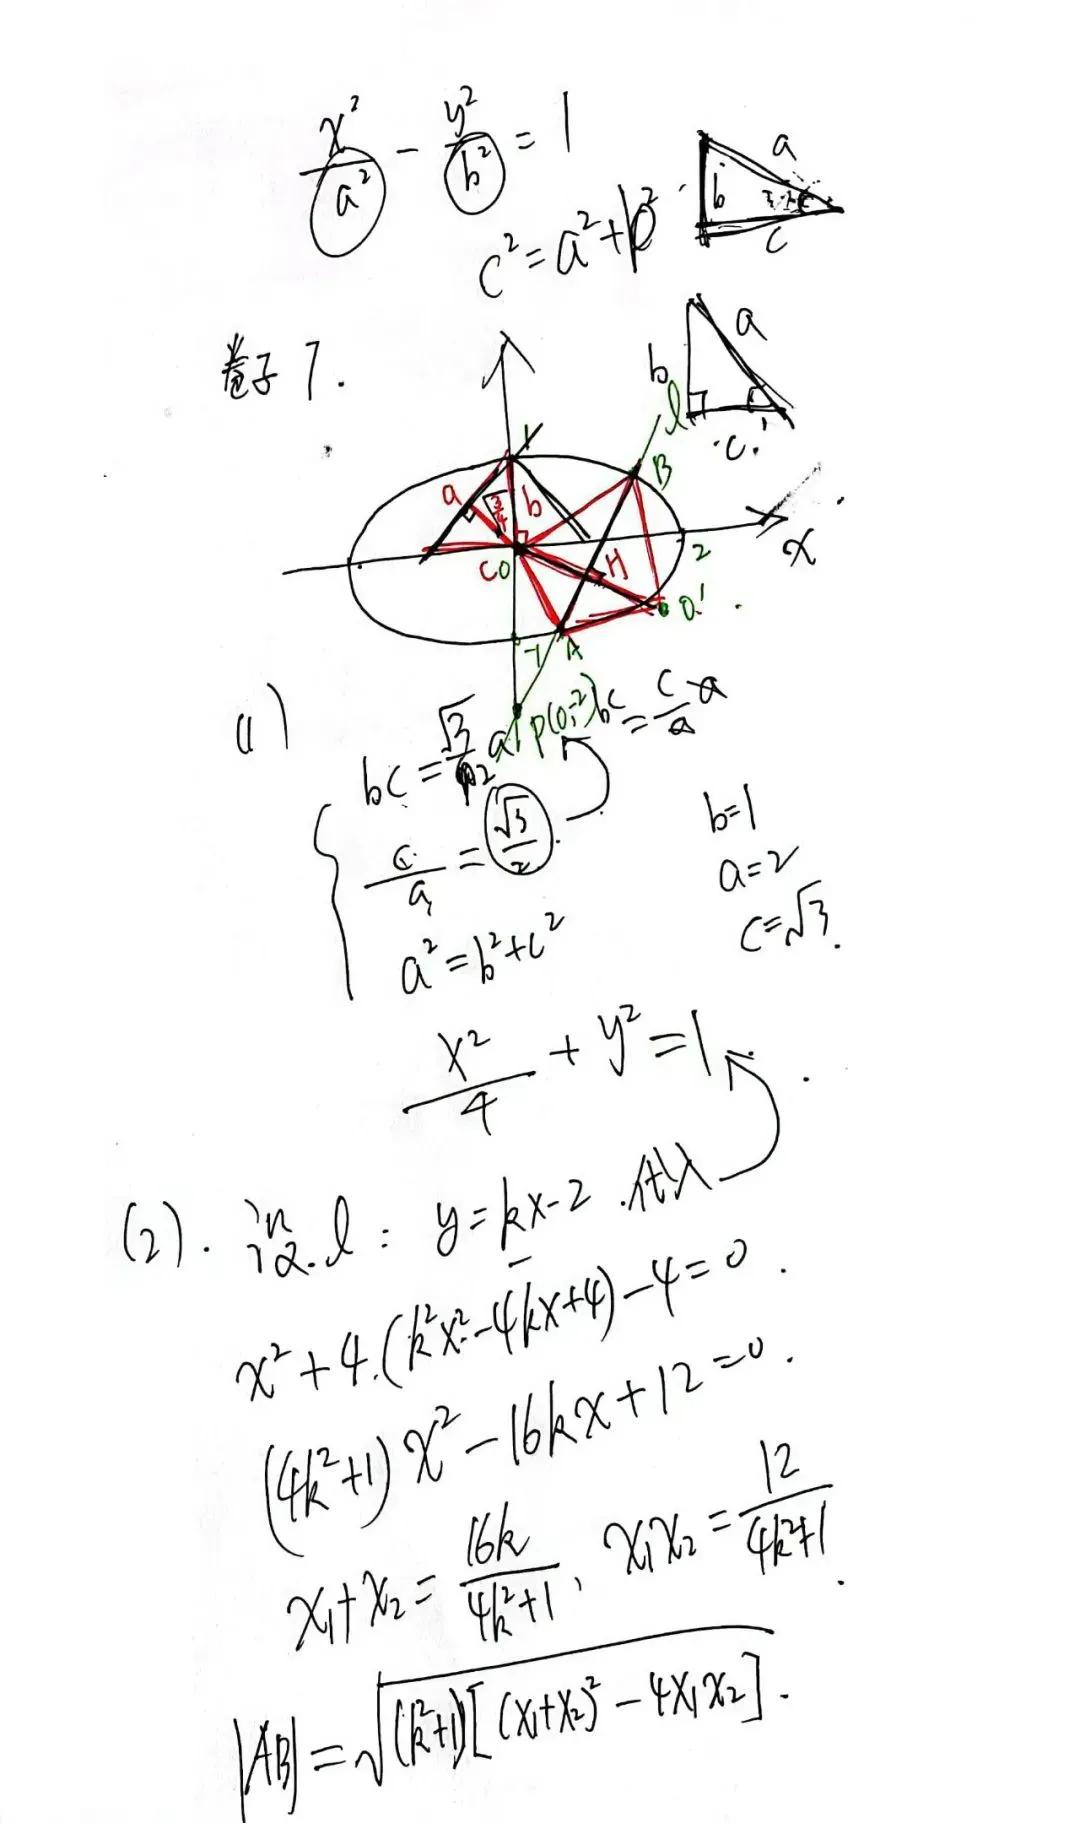 x²/a² - y²/b² = 1
a
b
c
c² = a² + b²
卷子7.
a
b
c
l
1
B
a
b
c
O
H
2
x
O'
-1
A
P(0,-2)
(1)
bc = √3/2 a
bc = c/a · a
c/a = √3/2
b=1
a=2
a² = b² + c²
c=√3.
x²/4 + y² = 1
(2). 设l: y = kx - 2 代入
x² + 4.(k²x² - 4kx + 4) - 4 = 0.
(4k²+1)x² - 16kx + 12 = 0.
x₁ + x₂ = 16k/(4k²+1), x₁x₂ = 12/(4k²+1).
|AB| = √((k²+1)[(x₁+x₂)² - 4x₁x₂]).